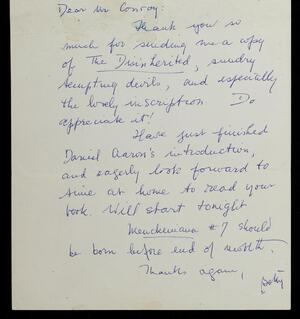 Dear Mr Conroy:
Thank you so
much for sending me a copy
of The Disinherited, sundry
tempting devils, and especially
the lovely inscription. Do
appreciate it!
Have just finished
Daniel Aaron's introduction,
and eagerly look forward to
time at home to read your
book. Will start tonight
Menckeniana #7 should
be born before end of month.
Thanks again,
Betty